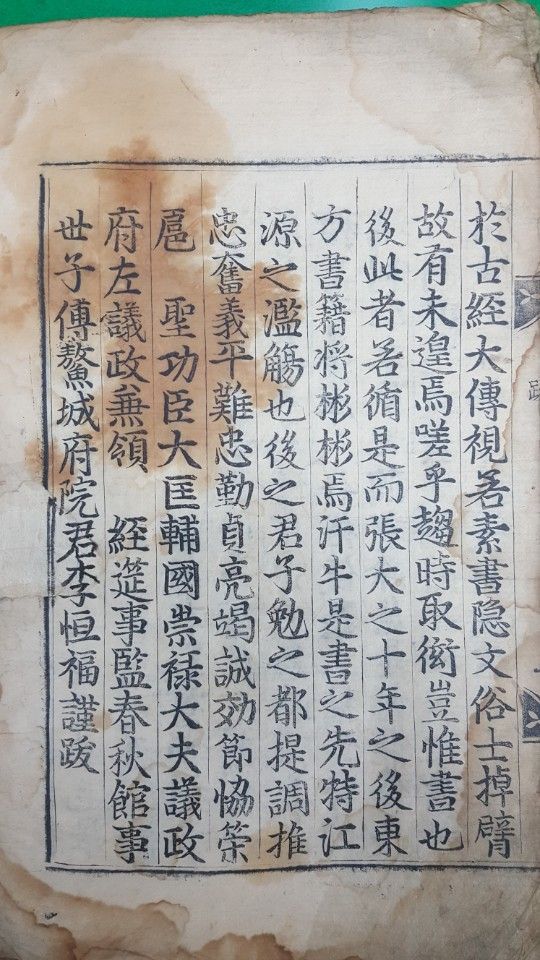 於古經大傳視若素書隐文俗士掉臂
故有未遑焉嗟乎趨時取衒豈惟書也
後此者若循是而張大之十年之後東
方書籍将彬彬焉汗牛是書之先特江
源之濫觴也後之君子勉之都提調推
忠奮義平難忠勤貞亮竭誠効節恊策
扈 聖功臣大匡輔國崇禄大夫議政
府左議政兼領 經筵事監春秋館事
世子傅鰲城府院君李恒福謹跋